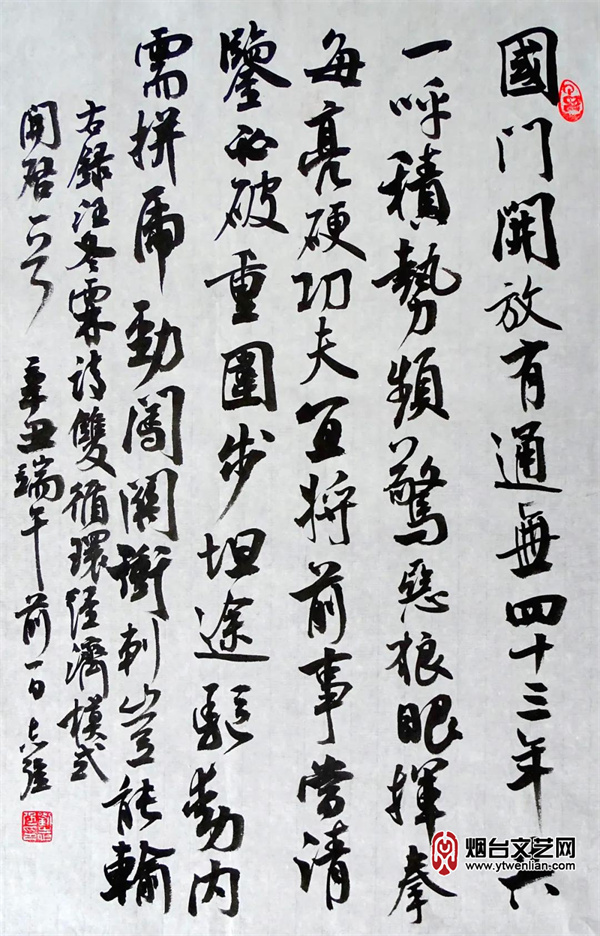 國门開放有通無四十三年大
一呼積勢頻驚惡狼眼揮拳
每亮硬功夫宜将前事當清
鑒必破重圍步坦途駈動内
需拼虎勁闖關衝刺豈能輸
右録汪冬霖詩雙循環经濟模式
開啓 辛丑端午前一日志强
烟台文艺网
www.ytwenlian.com